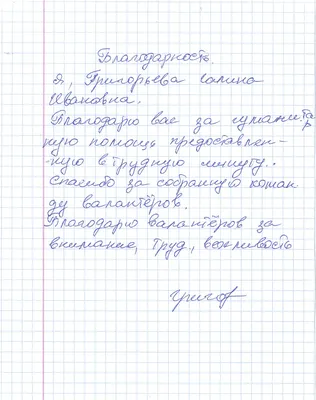 Благодарность.
я, Григорьева Галина
Ивановна.
Благодарю вас за гуманитар
ную помощь предоставлен-
ную в трудную минуту..
Спасибо за собранную коман
ду валантёров.
Благодарю валантёров за
внимание, труд, вежливость
Григор